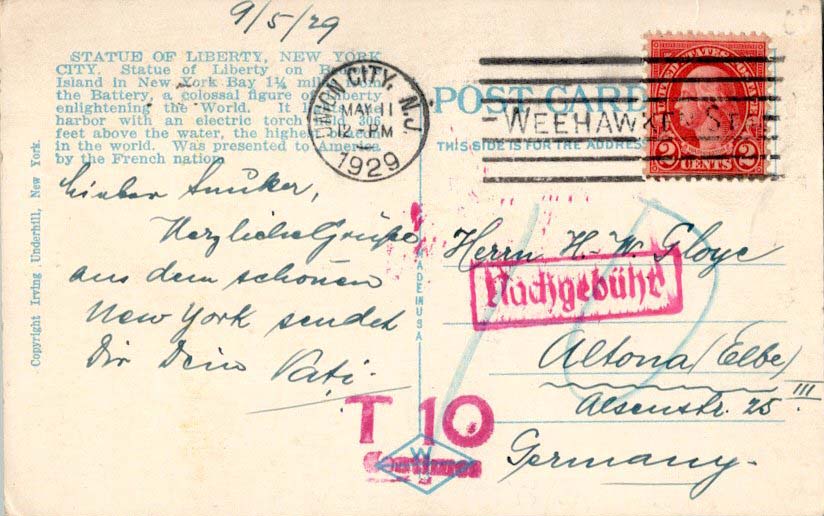 9/5/29
STATUE OF LIBERTY, NEW YORK
CITY. Statue of Liberty on
Island in New York Bay 1¼ from
the Battery, a colossal figure of Liberty
enlightening the World. It
harbor with an electric torch 306
feet above the water, the highest beacon
in the world. Was presented to America
by the French nation.
UNION CITY, N.J.
MAY 11
12 PM
1929
POST CARD
WEEHAWKEN ST
THIS SIDE IS FOR THE ADDRESS
2 CENTS 2
Copyright Irving Underhill, New York.
MADE IN USA
Lieber
Herzliche Grüße
aus dem schönen
New York sendet
Dir Dein Vati.
Herrn H.-W. Gloye
Nachgebühr
10
Altona (Elbe)
III
Alsenstr. 25
Germany.
T 10
Centimes
W